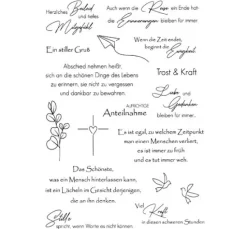 Herzliches Beileid
und tiefes
Mitgefühl
Auch wenn die Reise ein Ende hat-
die Erinnerungen bleiben für immer.
Wenn die Zeit endet,
beginnt die
Ewigkeit
Ein stiller Gruß
Abschied nehmen heißt,
sich an die schönen Dinge des Lebens
zu erinnern, sie nicht zu vergessen
und dankbar zu bewahren.
Trost & Kraft
Liebe und
Gedanken
bleiben für immer...
AUFRICHTIGE
Anteilnahme
Es ist egal, zu welchem Zeitpunkt
man einen Menschen verliert,
es ist immer zu früh.
und es tut immer weh.
Das Schönste,
was ein Mensch hinterlassen kann,
ist ein Lächeln im Gesicht derjenigen,
die an ihn denken.
Stille
spricht, wenn Worte es nicht können.
Viel Kraft
in diesen schweren Stunden